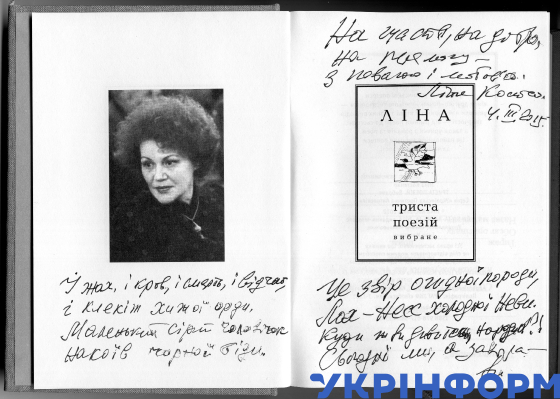 І жах, і кров, і смерть, і відчай,
і клекіт хижої орди.
Маленький сірий чоловічок
накоїв чорної біди.
На щастя, на добро,
на перемогу –
з повагою і любов'ю.
Ліна Костен
4.III.2015
ЛІНА
триста
поезій
вибране
Це звір огидної породи,
Лох-Несс холодної Неви.
Куди ж ви дивитесь, народи?!
Сьогодні ми, а завтра –
ви.
УКРІНФОРМ